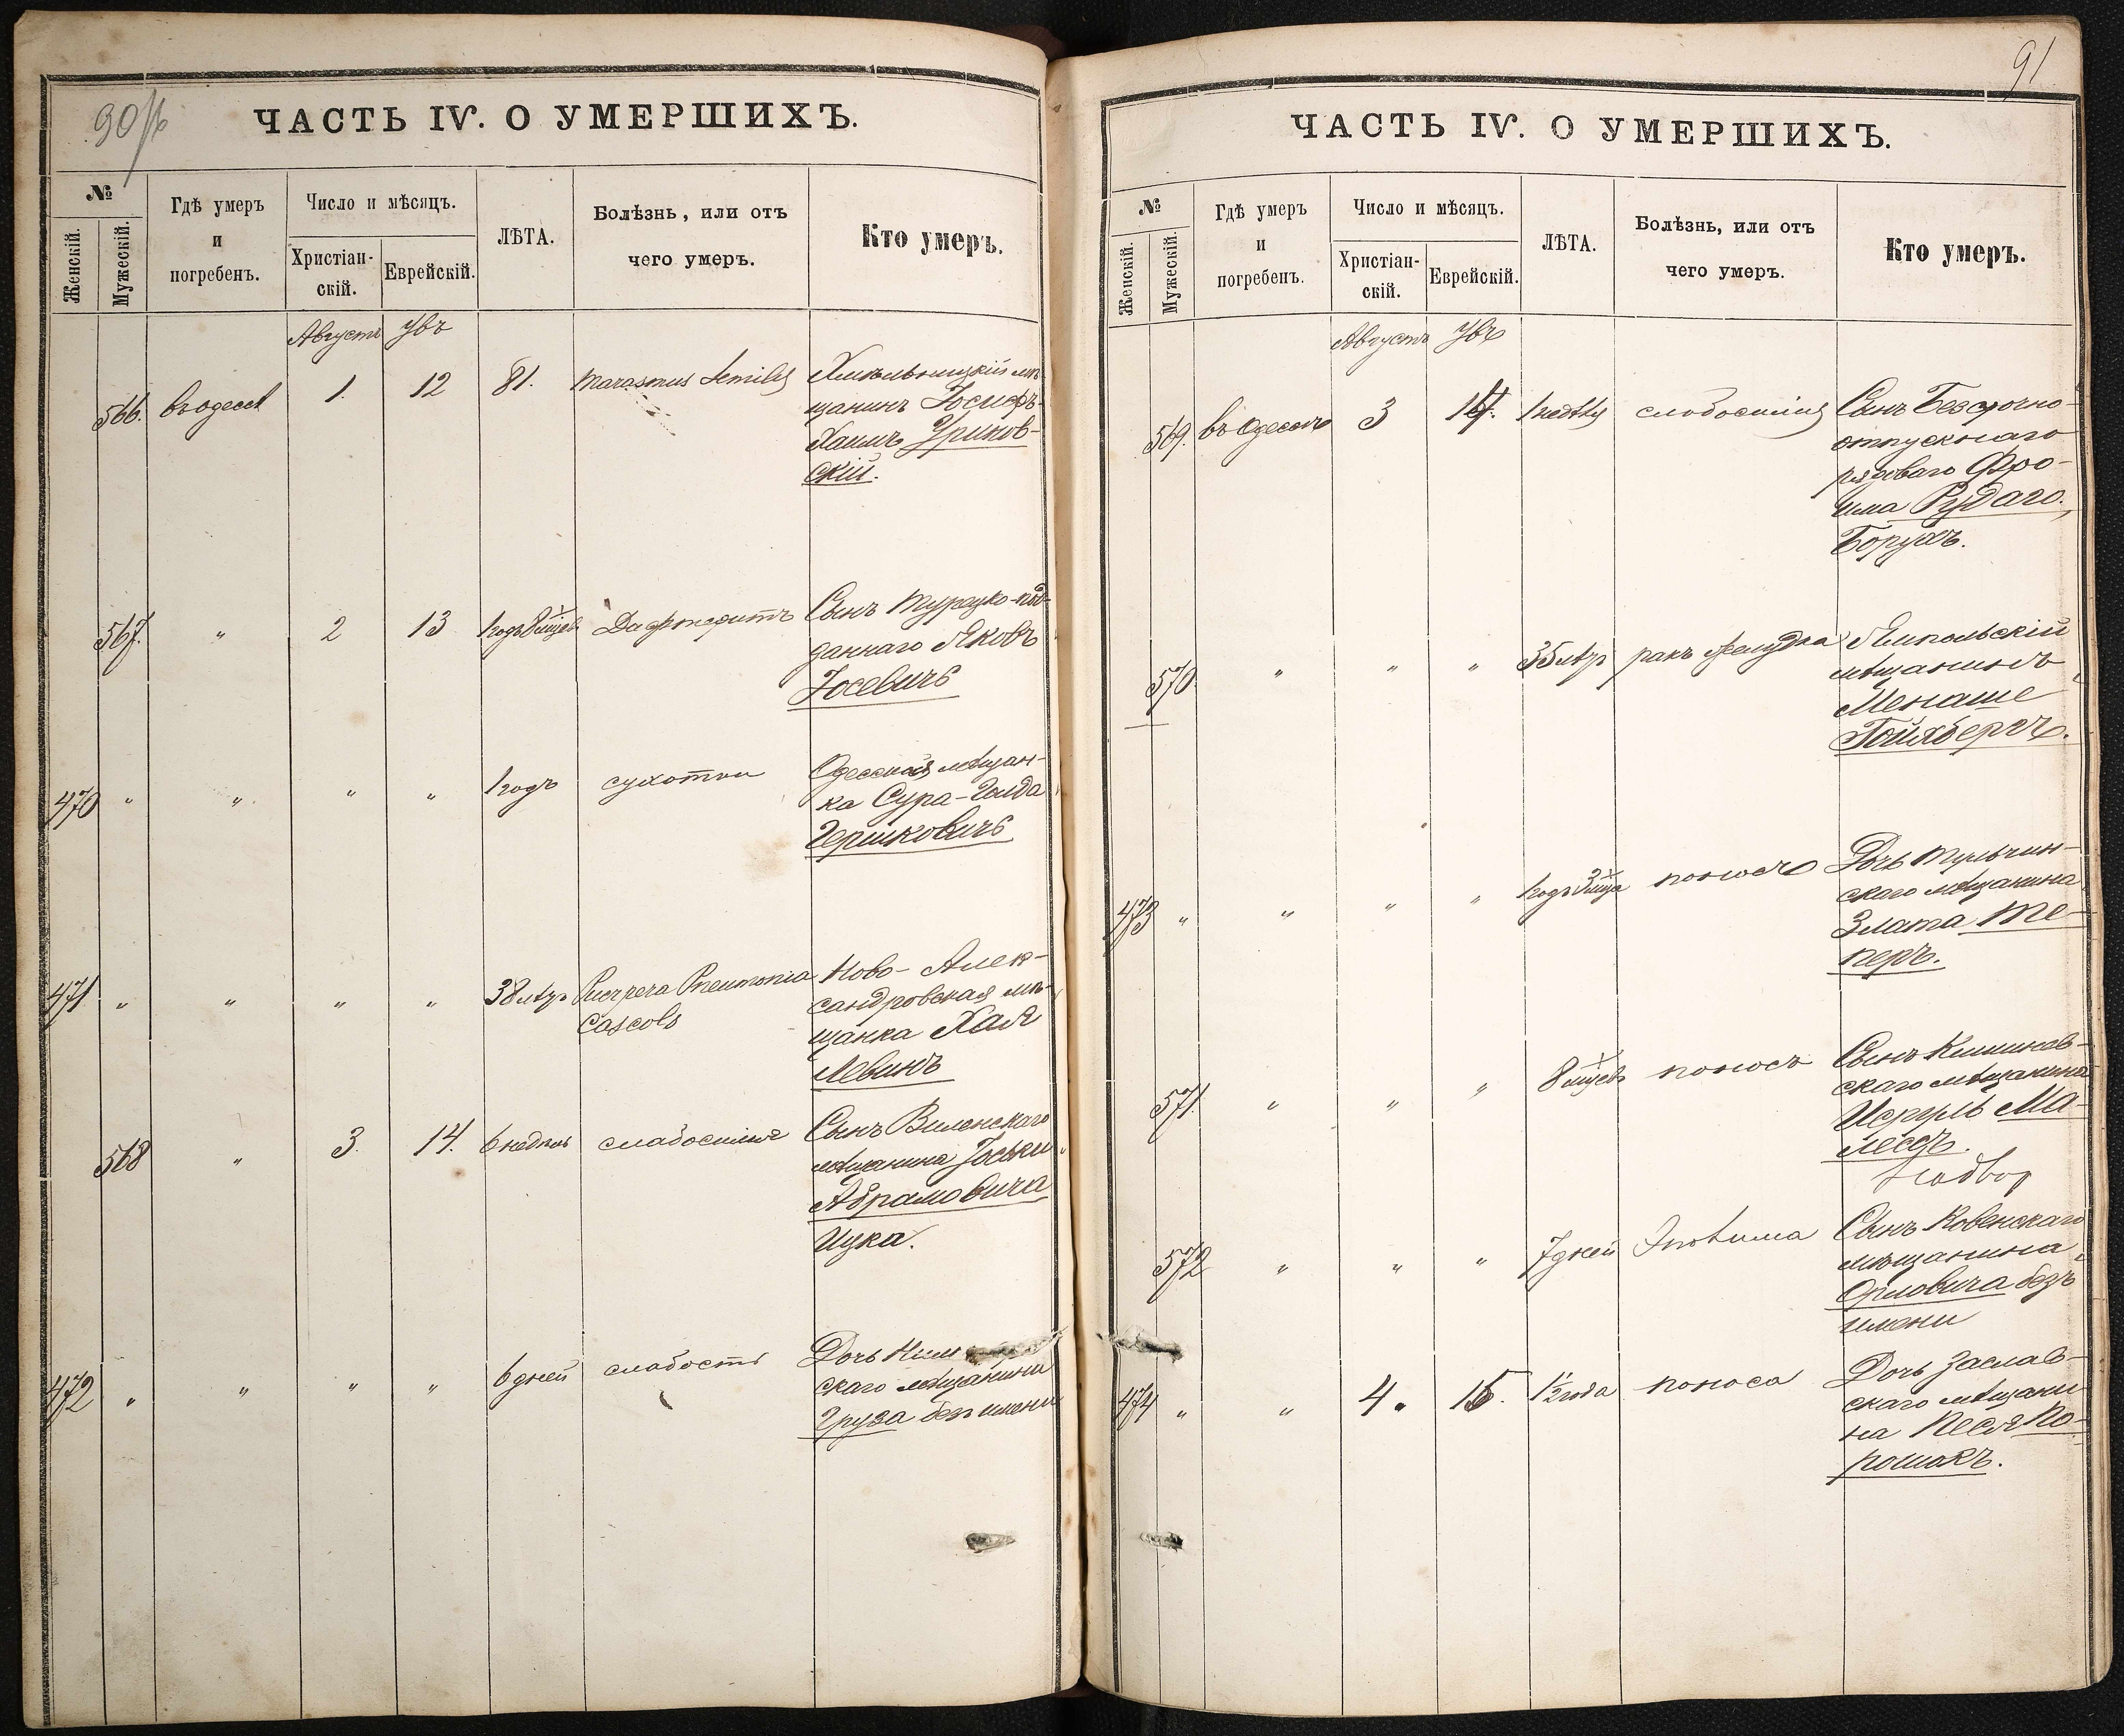 90
ЧАСТЬ IV. О УМЕРШИХЪ.
№
Женскій.
Мужескій.
Гдѣ умеръ
и
погребенъ.
Число и мѣсяцъ.
Христіан-
скій.
Еврейскій.
ЛѢТА.
Болѣзнь, или отъ
чего умеръ.
Кто умеръ.
Августъ
566. въ одессѣ 1. 12 81. Marasmus Хмѣльницкій мѣ-
щанинъ Іосифъ-
Хаимъ Уриков-
скій.
567. " 2 13 1 годъ 8 мцев Сынъ Турецко-под-
даннаго Яковъ
Іосевичъ
470 " " " " 1 годъ сухотки Одесская мѣщан-
ка Сура-Голда
Гершковичъ
471 " " " " 38 лѣтъ Pneumonia Ново-Алек-
сандровская мѣ-
щанка Хая
Левинъ
568 " 3. 14. 6 недѣль Сынъ Виленскаго
мѣщанина Іоськи
Абрамовича
Ицка.
472 " " " " 6 дней слабость Дочь
скаго мѣщанина
Груза безъ имени
91
ЧАСТЬ IV. О УМЕРШИХЪ.
№
Женскій.
Мужескій.
Гдѣ умеръ
и
погребенъ.
Число и мѣсяцъ.
Христіан-
скій.
Еврейскій.
ЛѢТА.
Болѣзнь, или отъ
чего умеръ.
Кто умеръ.
Августъ
569. въ Одессѣ 3 14. Сынъ Безсрочно-
отпускнаго
рядоваго Фро-
има Рудаго,
Борухъ.
570. " " " 35 лѣтъ ракъ желудка Ямпольскій
мѣщанинъ
Менаше
Гойхбергъ.
473 " " " " 1 годъ 3 мца поносъ Дочь Тульчин-
скаго мѣщанина
Злата Те-
перъ.
571. " " " 8 мцевъ поносъ Сынъ Кишинев-
скаго мѣщанина
Исруль Ма-
лесъ.
572 " " " 7 дней Сынъ Ковенскаго
мѣщанина
Орловича безъ
имени
474 " " 4. 15. 1 1/2 года поноса Дочь Заслав-
скаго мѣщани-
на Песя По-
рошокъ.